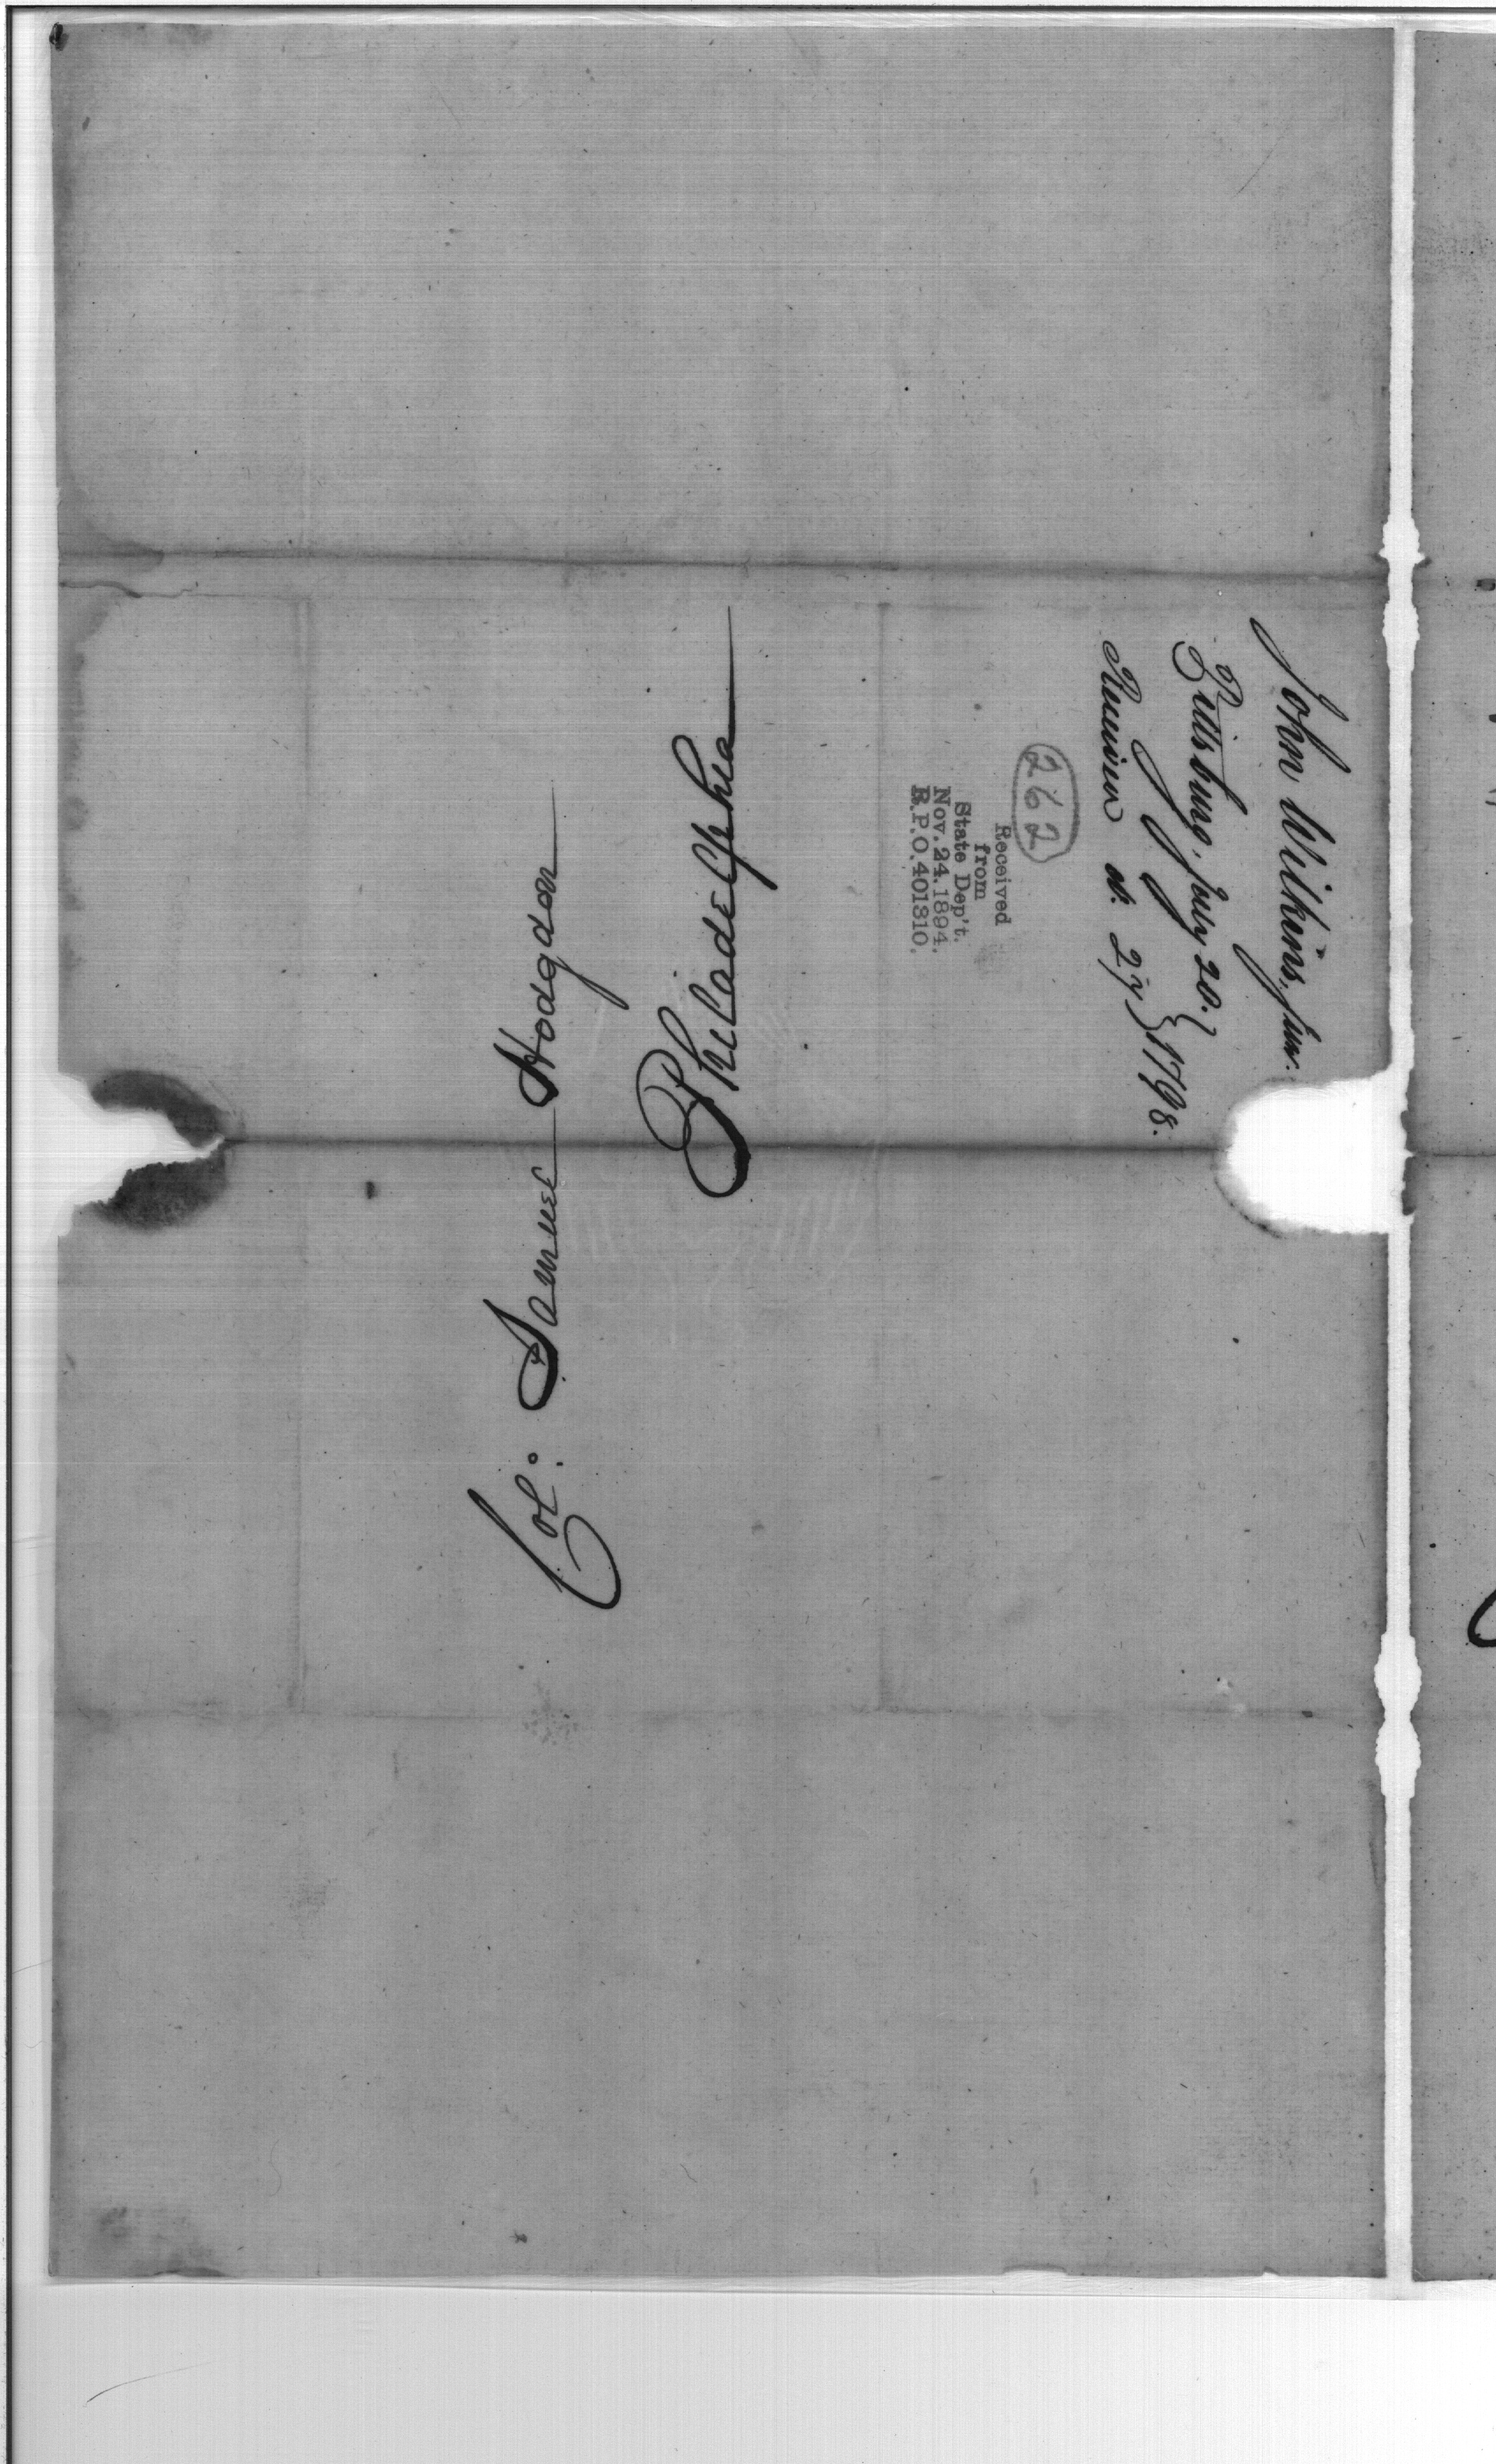 Col: Samuel Hodgdon
Philadelphia
John Wilkins, junr.
Pittsburg, July 20. }
Received do. 27 } 1798.
262
Received
from
State Dep't.
Nov. 24. 1894.
R.P.O. 401310.